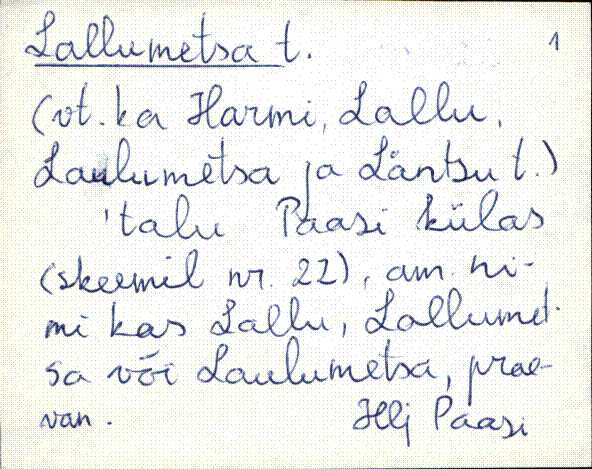 Lallumetsa t. 1
(vt. ka Harmi, Lallu,
Laulumetsa ja Läntsu t.)
'talu Paasi külas
(skeemil nr. 22), am. ni-
mi kas Lallu, Lallumet-
sa või Laulumetsa, prae-
van. Hlj Paasi